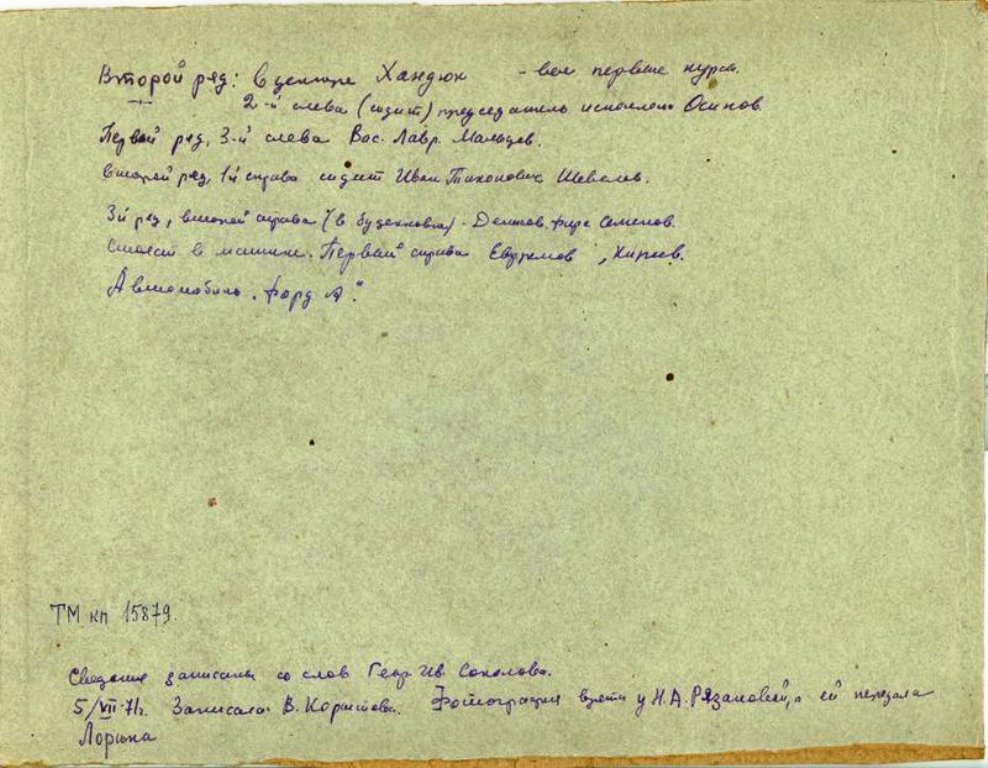 Второй ряд: в центре Хандюк - вел первые курсы.
2-й слева (сидит) председатель исполкома Осипов
Первый ряд, 3-й слева Вас. Лавр. Мальцев.
второй ряд, 1й справа сидит Иван Тихонович Шевелев.
3й ряд, второй справа (в буденновке) - Семенов.
Стоят в машине. Первый справа Евфремов,
Автомобиль "Форд А".
ТМ кп 15879.
Сведения записаны со слов Геор. Ив. Соколова.
5/VII-71г. Записала В. Фотография взята у Н.А. Рязановой, а ей передала
Лорина